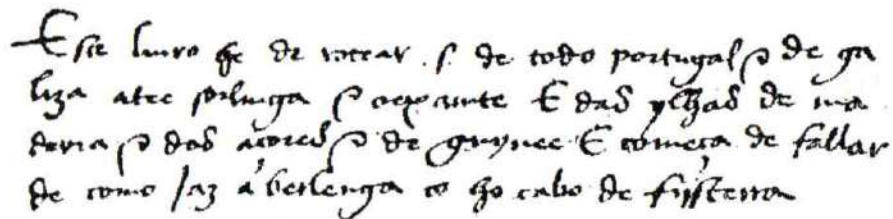 Este liuro he de rotear .s. de todo portugal e de ga
liza atee sorlinga e oexaunte E das ylhas de ma
deria e das açores e de guynee E começa de fallar
de como jaz a berlenga co ho cabo de fijsterra